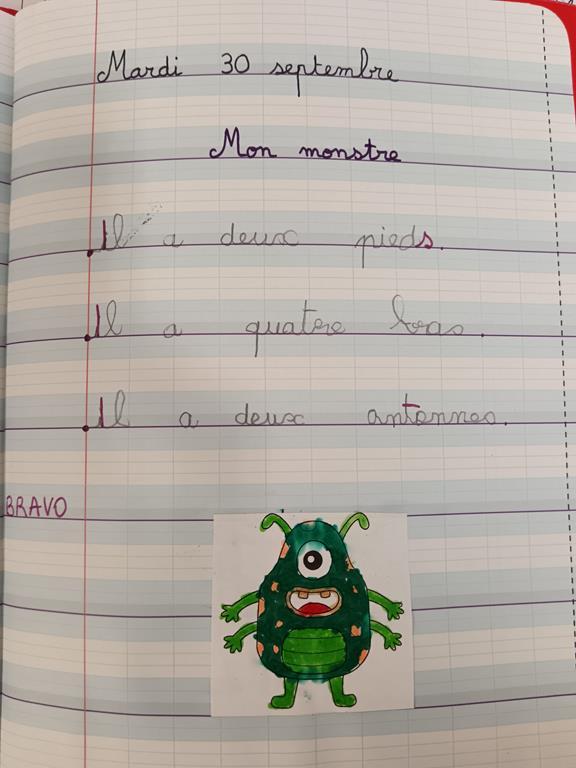 Mardi 30 septembre
Mon monstre
Il a deux pieds.
Il a quatre bras.
Il a deux antennes.
BRAVO